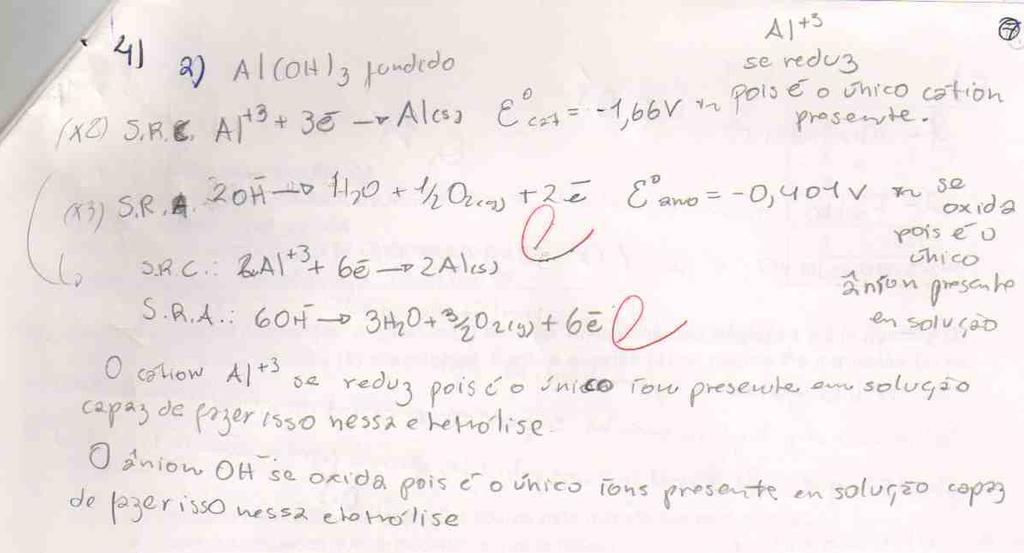 7
4) 2) Al(OH)3 fundido
(x2) S.R.C. Al+3 + 3ē → Al(s) Ɛ°cat = -1,66V ~
Al+3
se reduz
pois é o único cátion
presente.
(x3) S.R.A. 2OH- → 1H2O + 1/2O2(g) + 2ē Ɛ°ano = -0,401V ~
se
oxida
pois é o
único
ânion presente
en solução
S.R.C.: 2Al+3 + 6ē → 2Al(s)
S.R.A.: 6OH- → 3H2O + 3/2O2(g) + 6ē
O cátion Al+3 se reduz pois é o único íon presente em solução
capaz de fazer isso nessa eletrólise.
O ânion OH- se oxida pois é o único íons presente en solução capaz
de fazer isso nessa eletrólise